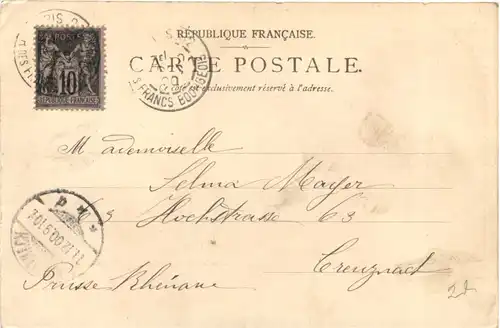 RÉPUBLIQUE FRANÇAISE.
CARTE POSTALE.
exclusivement réservé à l'adresse.
10
REPUBLIQUE FRANÇAISE
PARIS
FRANCS BOURGEOIS
Mademoiselle
Selma Mayer
63 Hochstrasse 63
Creuznach
Prusse Rhénane